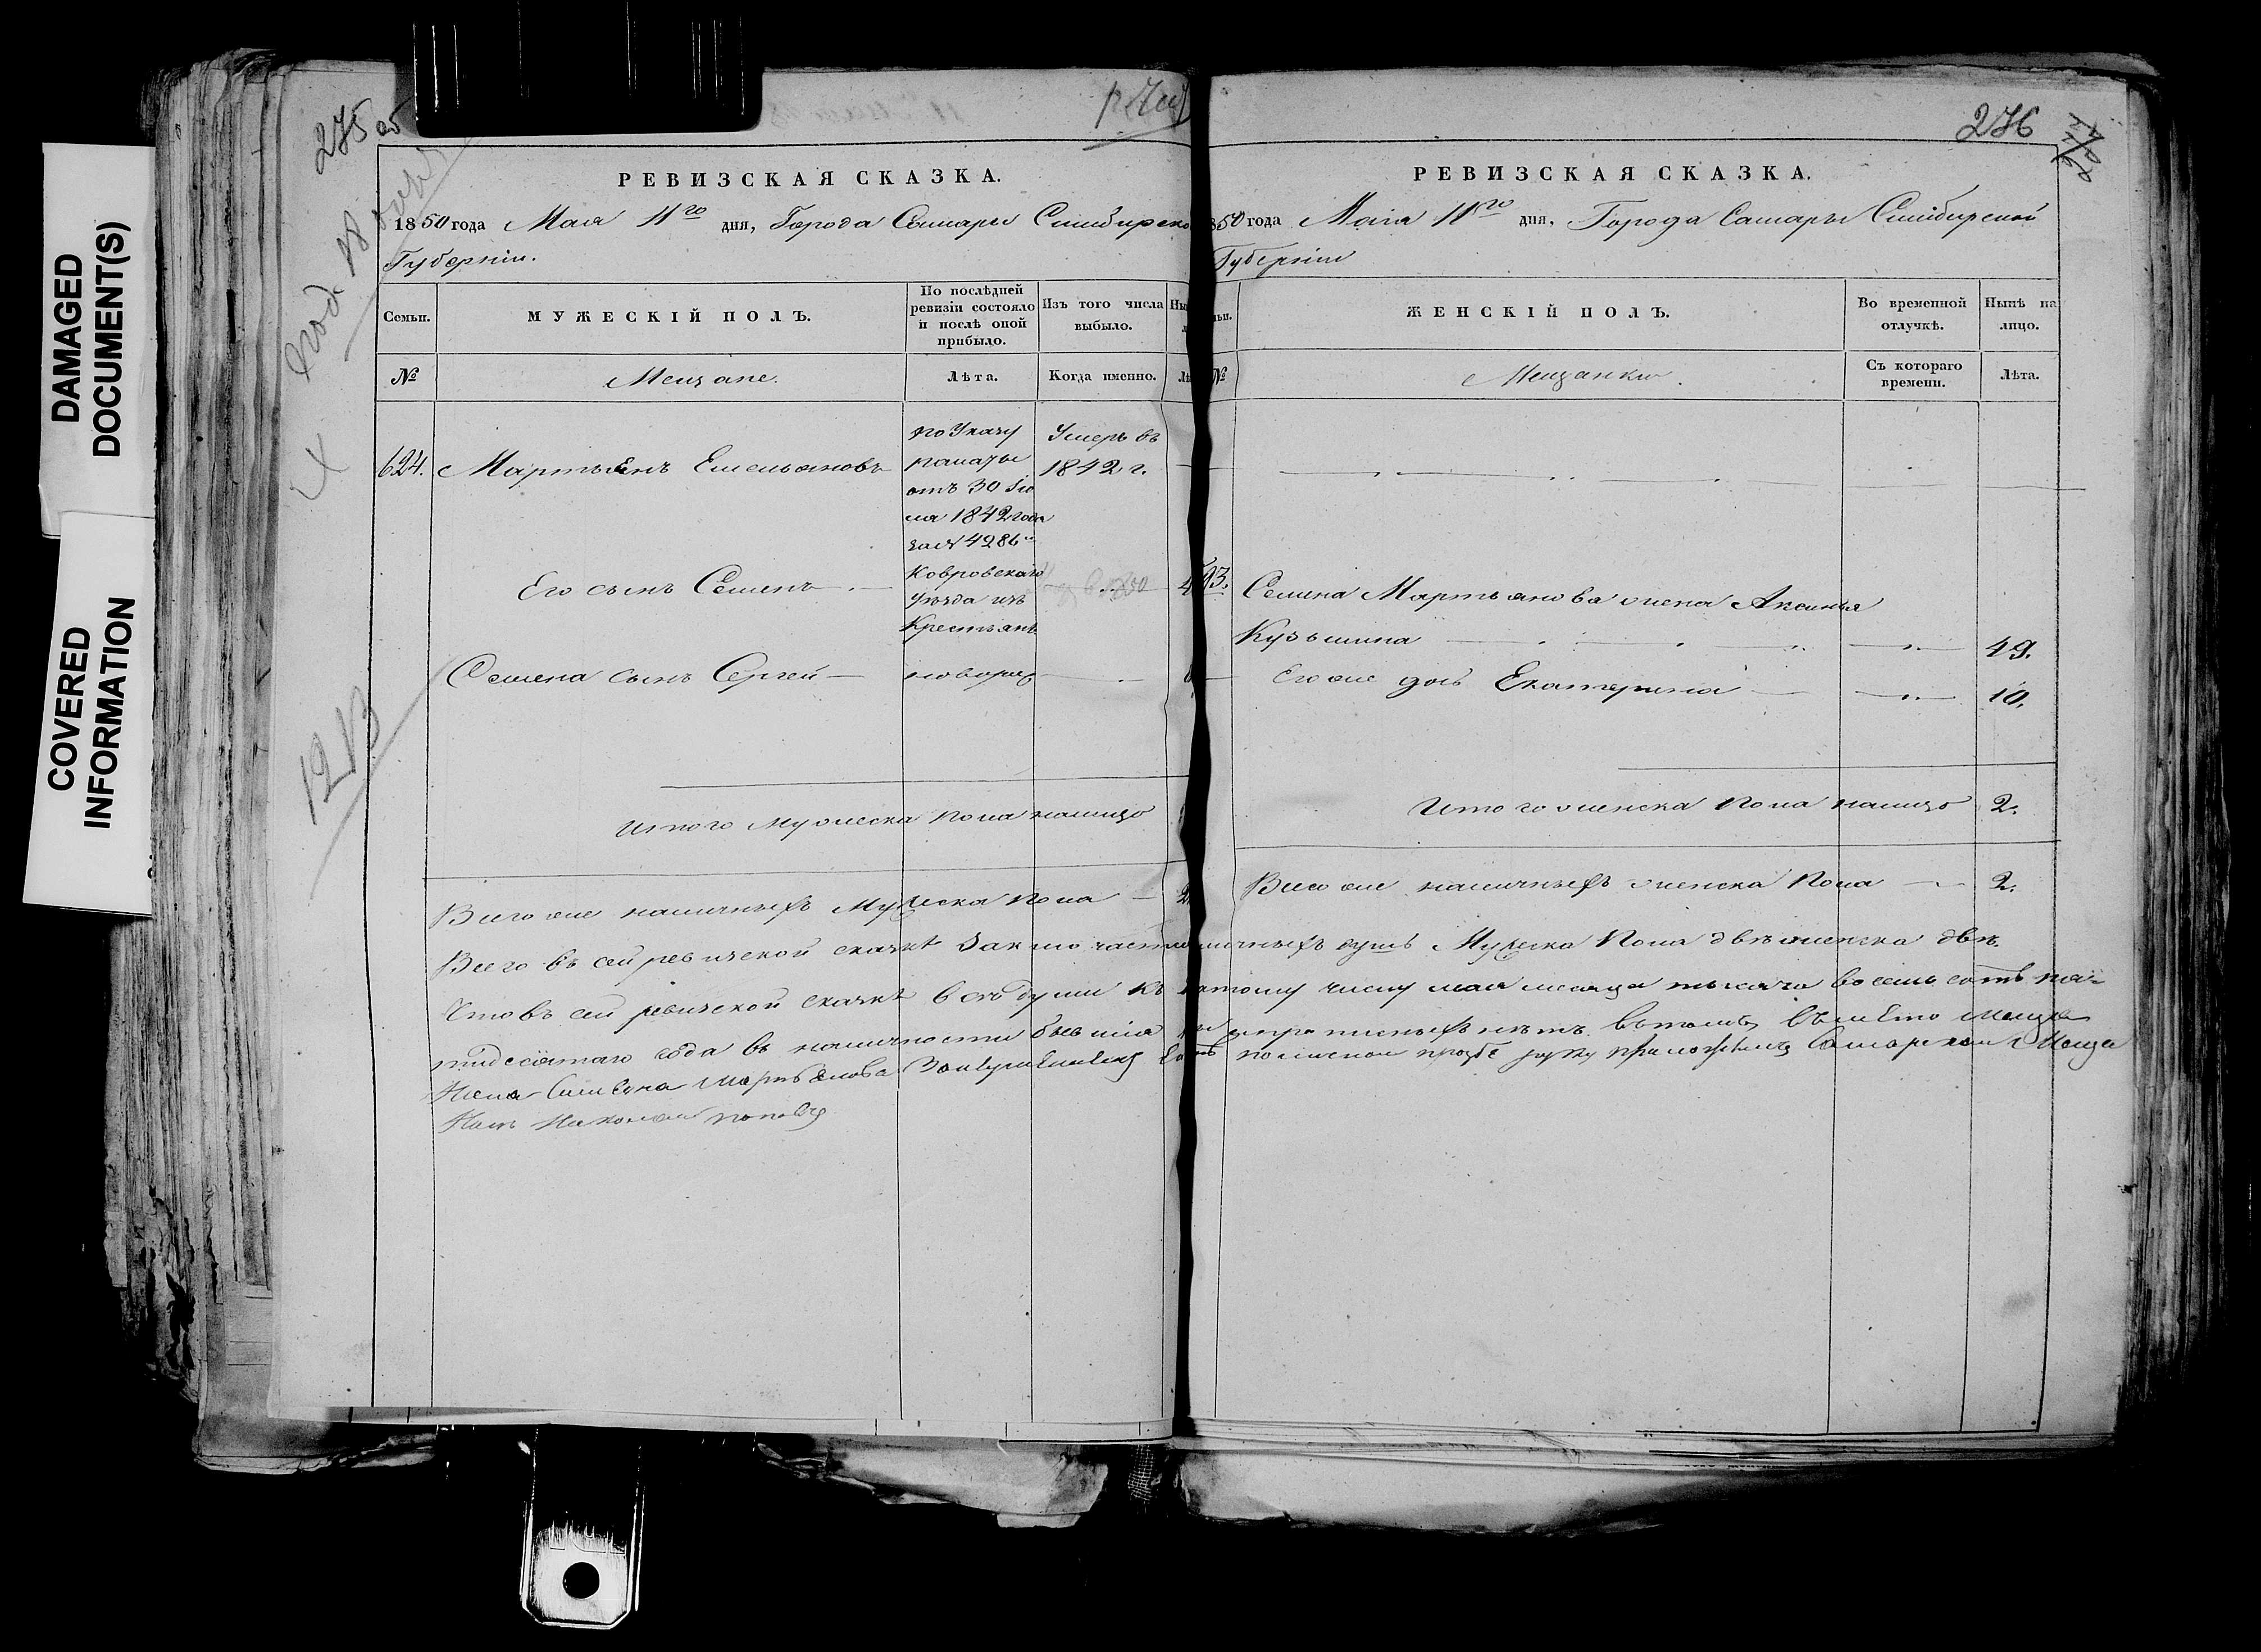 DAMAGED
DOCUMENT(S)
COVERED
INFORMATION
275 об
РЕВИЗСКАЯ СКАЗКА.
1850 года Мая 11го дня, Города Самары Симбирско
Губернiи.
Семьи.
МУЖЕСКIЙ ПОЛЪ.
По послѣдней
ревизiи состояло
и послѣ оной
прибыло.
Изъ того числа
выбыло.
№
Мещане.
Лѣта.
Когда именно.
624.
Мартьянъ Емельяновъ
по Указу
палаты
отъ 30 Iю
ля 1842 года
за № 4286
Ковровскаго
уѣзда изъ
Крестьянъ
Умеръ въ
1842 г.
Его сынъ Семенъ
Семена сынъ Сергей
новорож
Итого мужеска пола налицо
Всего же наличныхъ мужеска пола 2.
1213
276
РЕВИЗСКАЯ СКАЗКА.
1850 года Маiя 11го дня, Города Самары Симбирской
Губернiи
ЖЕНСКIЙ ПОЛЪ.
Во временной
отлучкѣ.
Нынѣ на
лицо.
№
Мещанки.
Съ котораго
времени.
Лѣта.
Семена Мартьянова жена Аксинья
Кузьмина 49.
Его же дочь Екатерина 10.
Итого женска пола налицо 2.
Всего же наличныхъ женска пола 2.
Всего въ сей ревизской сказкѣ заключается наличныхъ душъ мужеска пола двѣ женска двѣ.
Что въ сей ревизской сказкѣ всѣ души къ пятому числу мая месяца тысяча восемь сотъ пя-
тидесятаго года въ наличности бывшiя и прописныхъ нѣтъ въ томъ вместо меща
нина Симеона Мартьянова его личной прозбе руку приложилъ Самарской меща
нинъ Николай Поповъ